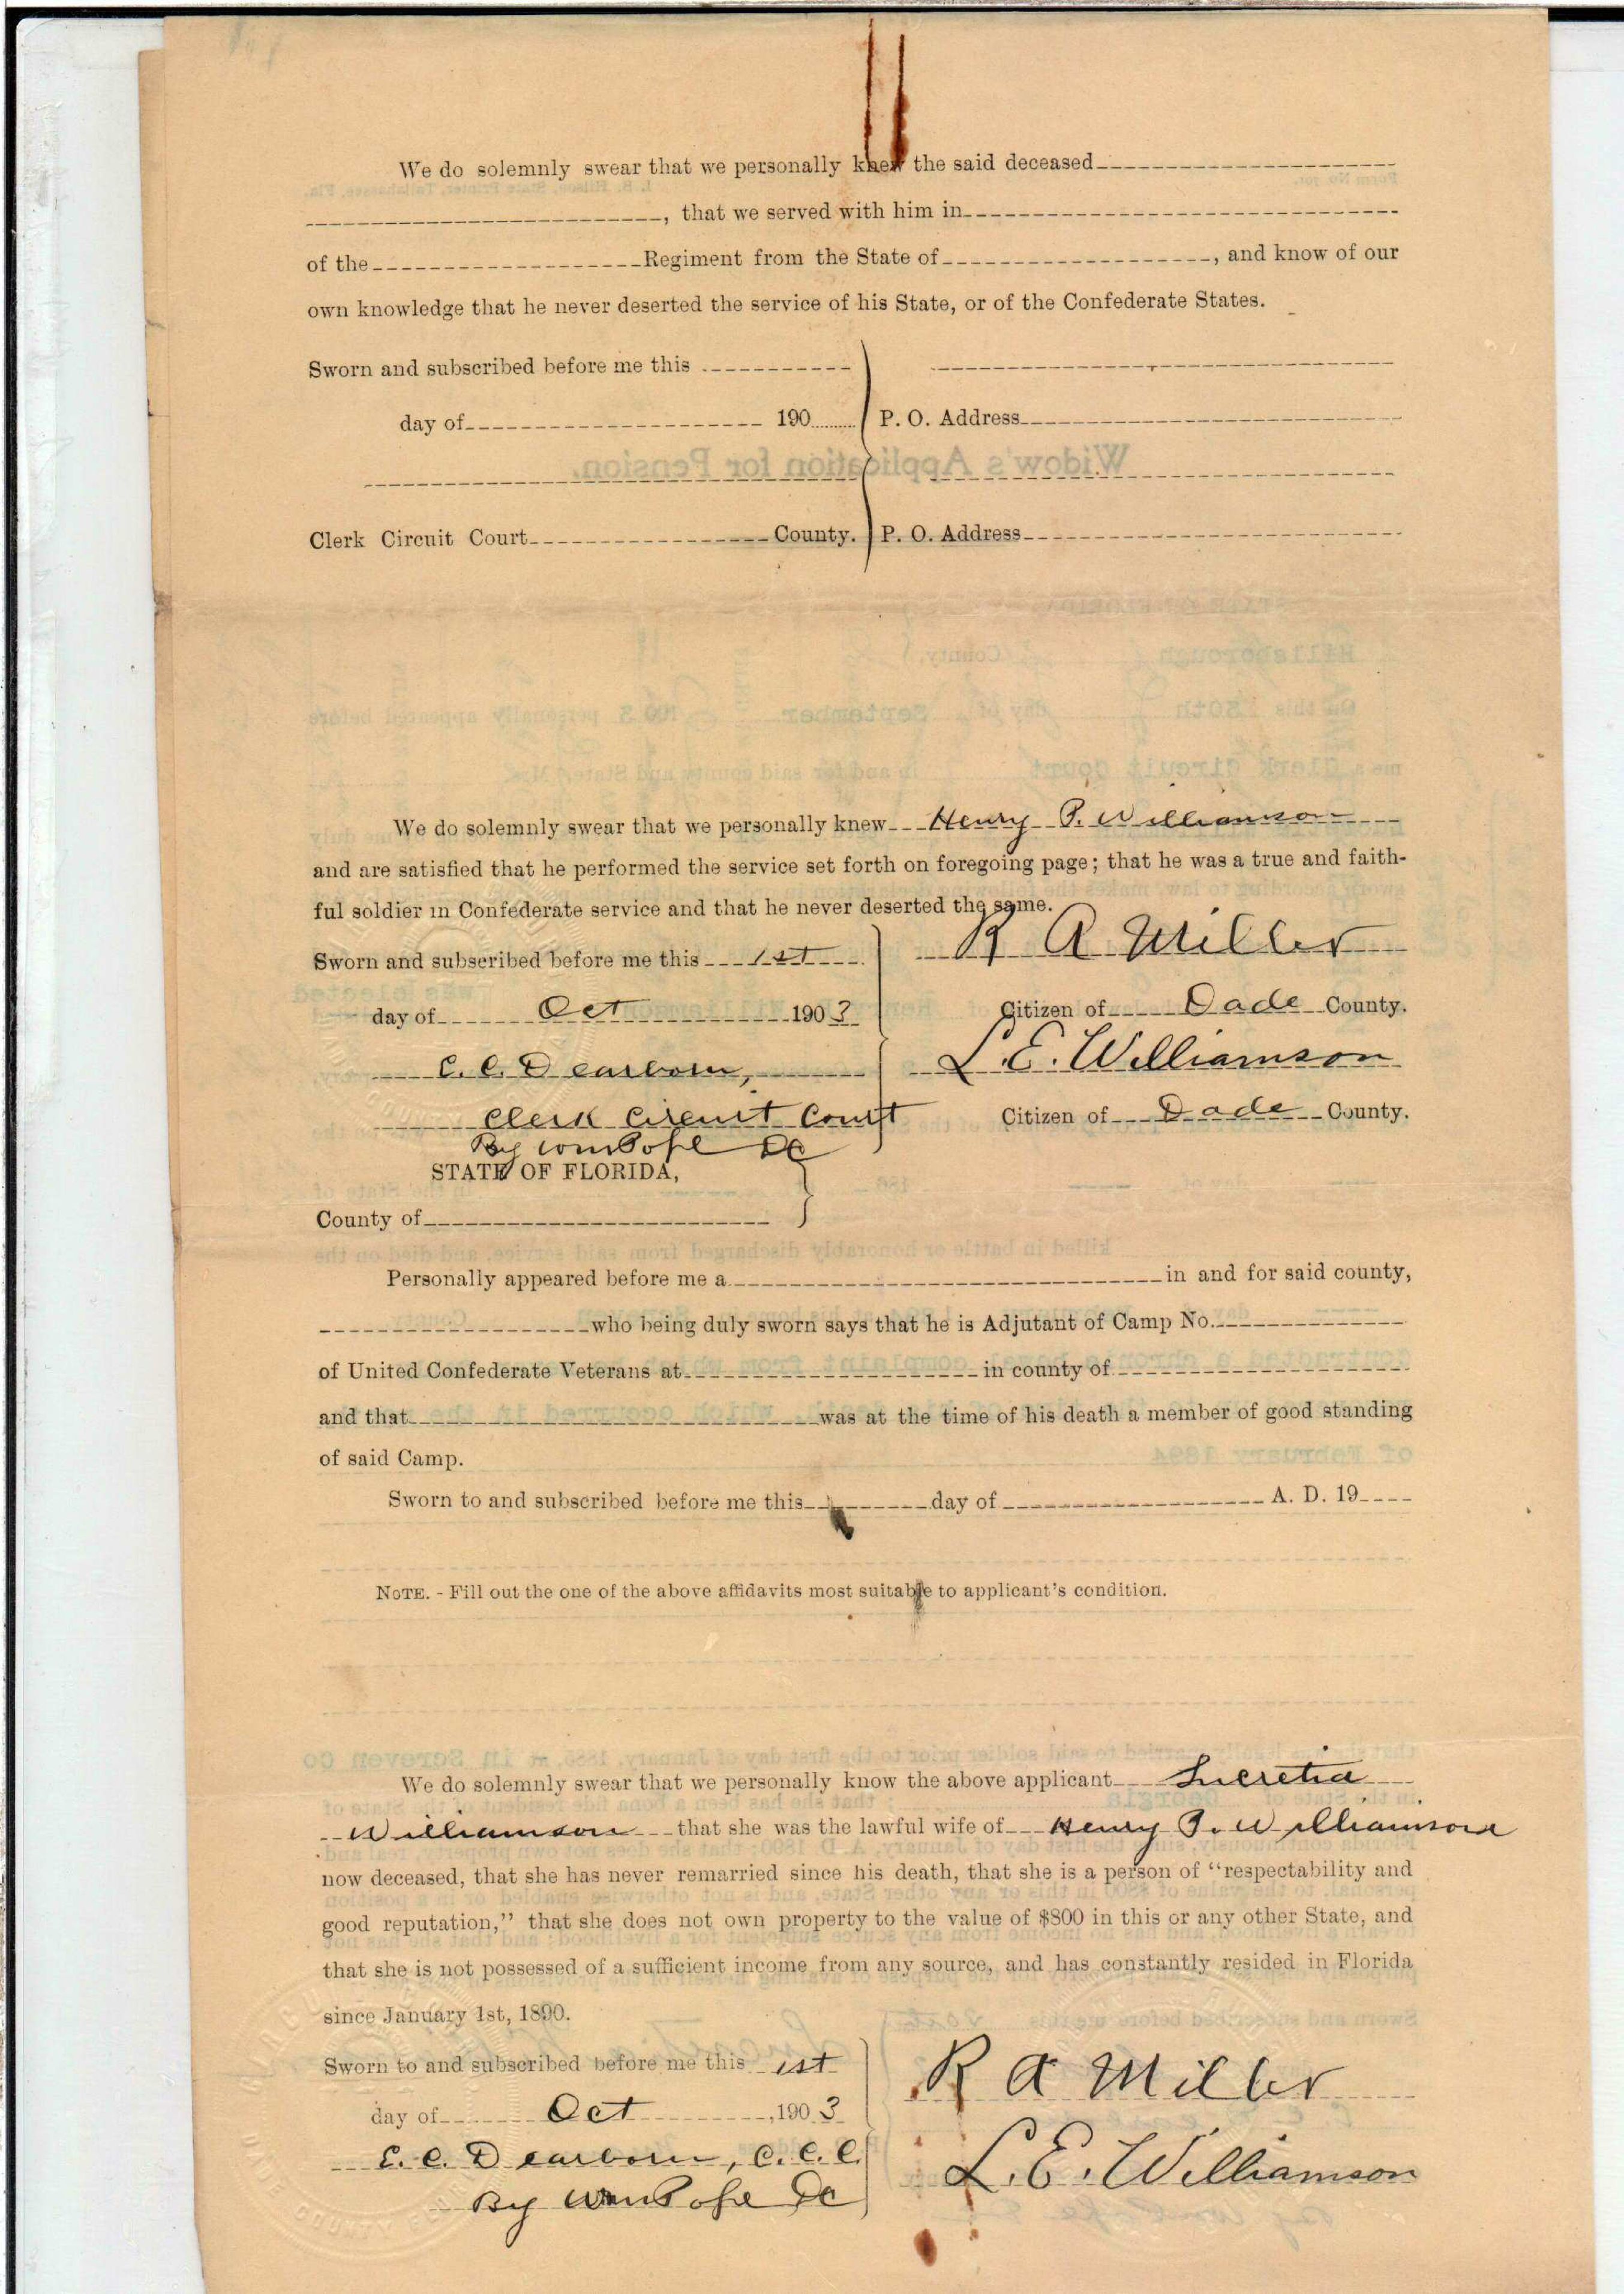 We do solemnly swear that we personally knew the said deceased
, that we served with him in
of the Regiment from the State of , and know of our
own knowledge that he never deserted the service of his State, or of the Confederate States.
Sworn and subscribed before me this
day of 190 P. O. Address
Widow's Application for Pension.
Clerk Circuit Court County. P. O. Address
We do solemnly swear that we personally knew Henry P. Williamson
and are satisfied that he performed the service set forth on foregoing page; that he was a true and faith-
ful soldier in Confederate service and that he never deserted the same.
R A Miller
Sworn and subscribed before me this 1st
day of Oct 1903 Citizen of Dade County.
L. E. Williamson
E. C. Dearborn,
Clerk Circuit Court Citizen of Dade County.
By Wm Pope DC
STATE OF FLORIDA,
County of
Personally appeared before me a in and for said county,
who being duly sworn says that he is Adjutant of Camp No.
of United Confederate Veterans at in county of
and that was at the time of his death a member of good standing
of said Camp.
Sworn to and subscribed before me this day of A. D. 19
NOTE. - Fill out the one of the above affidavits most suitable to applicant's condition.
We do solemnly swear that we personally know the above applicant Lucretia
Williamson that she was the lawful wife of Henry P. Williamson
now deceased, that she has never remarried since his death, that she is a person of "respectability and
good reputation," that she does not own property to the value of $800 in this or any other State, and
that she is not possessed of a sufficient income from any source, and has constantly resided in Florida
since January 1st, 1890.
Sworn to and subscribed before me this 1st
R A Miller
day of Oct , 1903
E. C. Dearborn, C. C. C.
L. E. Williamson
By Wm Pope DC